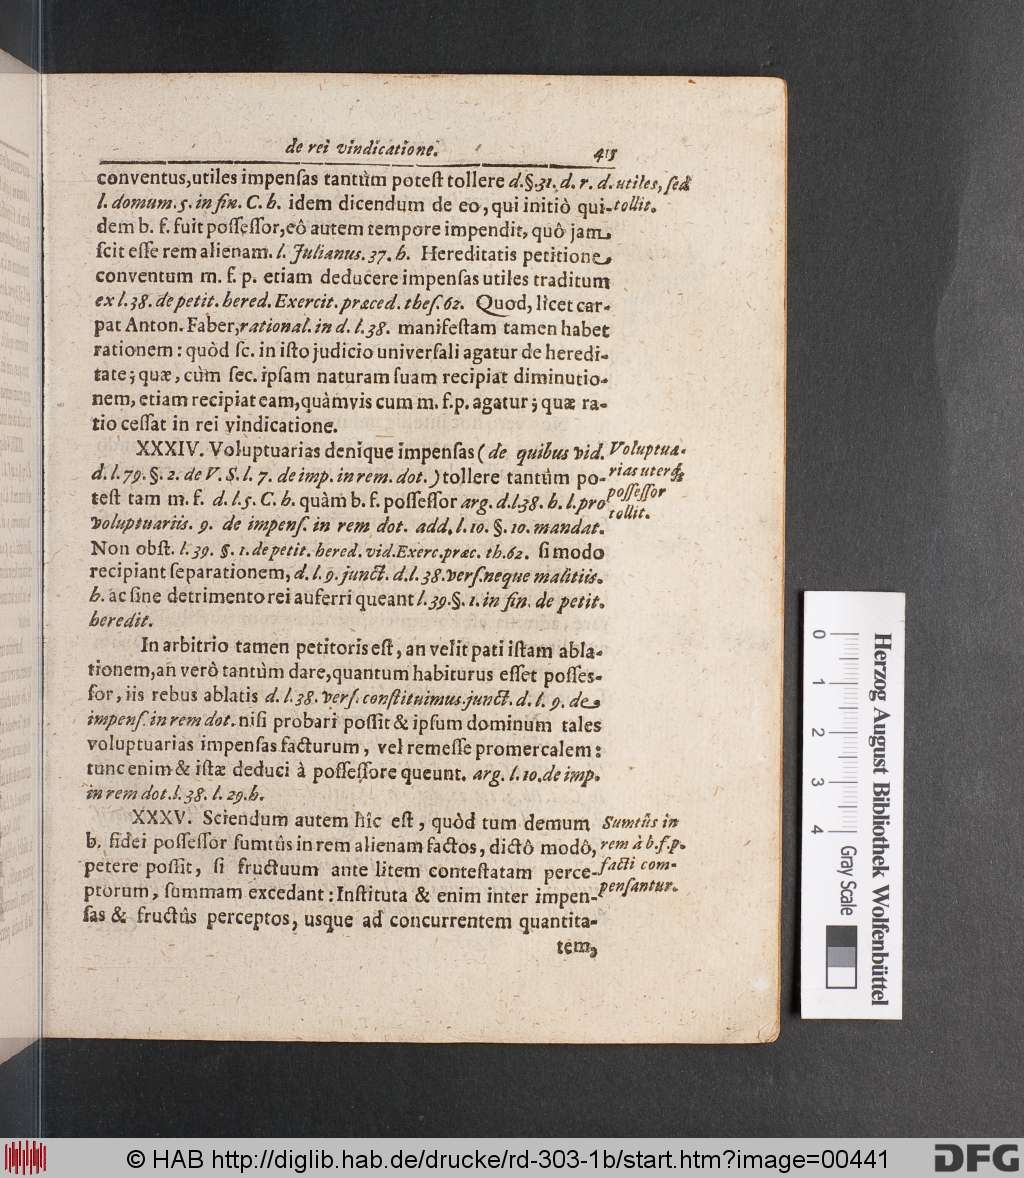 de rei vindicatione. 413
conventus,utiles impenſas tantùm poteſt tollere d.§.31. d. r. d. utiles, ſed
l. domum. 5. in fin. C. h. idem dicendum de eo, qui initiò qui- tollit.
dem b. f. fuit poſſeſſor, eô autem tempore impendit, quô jam
ſcit eſſe rem alienam. l. Julianus. 37. h. Hereditatis petitione
conventum m. f. p. etiam deducere impenſas utiles traditum
ex l. 38. de petit. hered. Exercit. præced. theſ. 62. Quod, licet car-
pat Anton. Faber, rational. in d. l. 38. manifeſtam tamen habet
rationem: quòd ſc. in iſto judicio univerſali agatur de heredi-
tate; quæ, cùm ſec. ipſam naturam ſuam recipiat diminutio-
nem, etiam recipiat eam, quàmvis cum m. f. p. agatur; quæ ra-
tio ceſſat in rei vindicatione.
XXXIV. Voluptuarias denique impenſas (de quibus vid. Voluptua-
d. l. 79. §. 2. de V. S. l. 7. de imp. in rem. dot.) tollere tantùm po- rias uterq;
teſt tam m. f. d. l. 5. C. h. quàm b. f. poſſeſſor arg. d. l. 38. h. l. pro poſſeſſor
voluptuariis. 9. de impenſ. in rem dot. add. l. 10. §. 10. mandat. tollit.
Non obſt. l. 39. §. 1. de petit. hered. vid. Exerc. præc. th. 62. ſi modo
recipiant ſeparationem, d. l. 9. junct. d. l. 38. verſ. neque malitiis.
h. ac ſine detrimento rei auferri queant l. 39. §. 1. in fin. de petit.
heredit.
In arbitrio tamen petitoris eſt, an velit pati iſtam abla-
tionem, an verò tantùm dare, quantum habiturus eſſet poſſeſ-
ſor, iis rebus ablatis d. l. 38. verſ. conſtituimus. junct. d. l. 9. de
impenſ. in rem dot. niſi probari poſſit & ipſum dominum tales
voluptuarias impenſas facturum, vel rem eſſe promercalem:
tunc enim & iſtæ deduci à poſſeſſore queunt. arg. l. 10. de imp.
in rem dot. l. 38. l. 29. h.
XXXV. Sciendum autem hîc eſt, quòd tum demum Sumtûs in
b. fidei poſſeſſor ſumtûs in rem alienam factos, dictô modô, rem à b. f. p.
petere poſſit, ſi fructuum ante litem conteſtatam perce- facti com-
ptorum, ſummam excedant: Inſtituta & enim inter impen- penſantur.
ſas & fructûs perceptos, usque ad concurrentem quantita-
tem,
0
1
2
3
4
Gray Scale
Herzog August Bibliothek Wolfenbüttel
© HAB http://diglib.hab.de/drucke/rd-303-1b/start.htm?image=00441
DFG